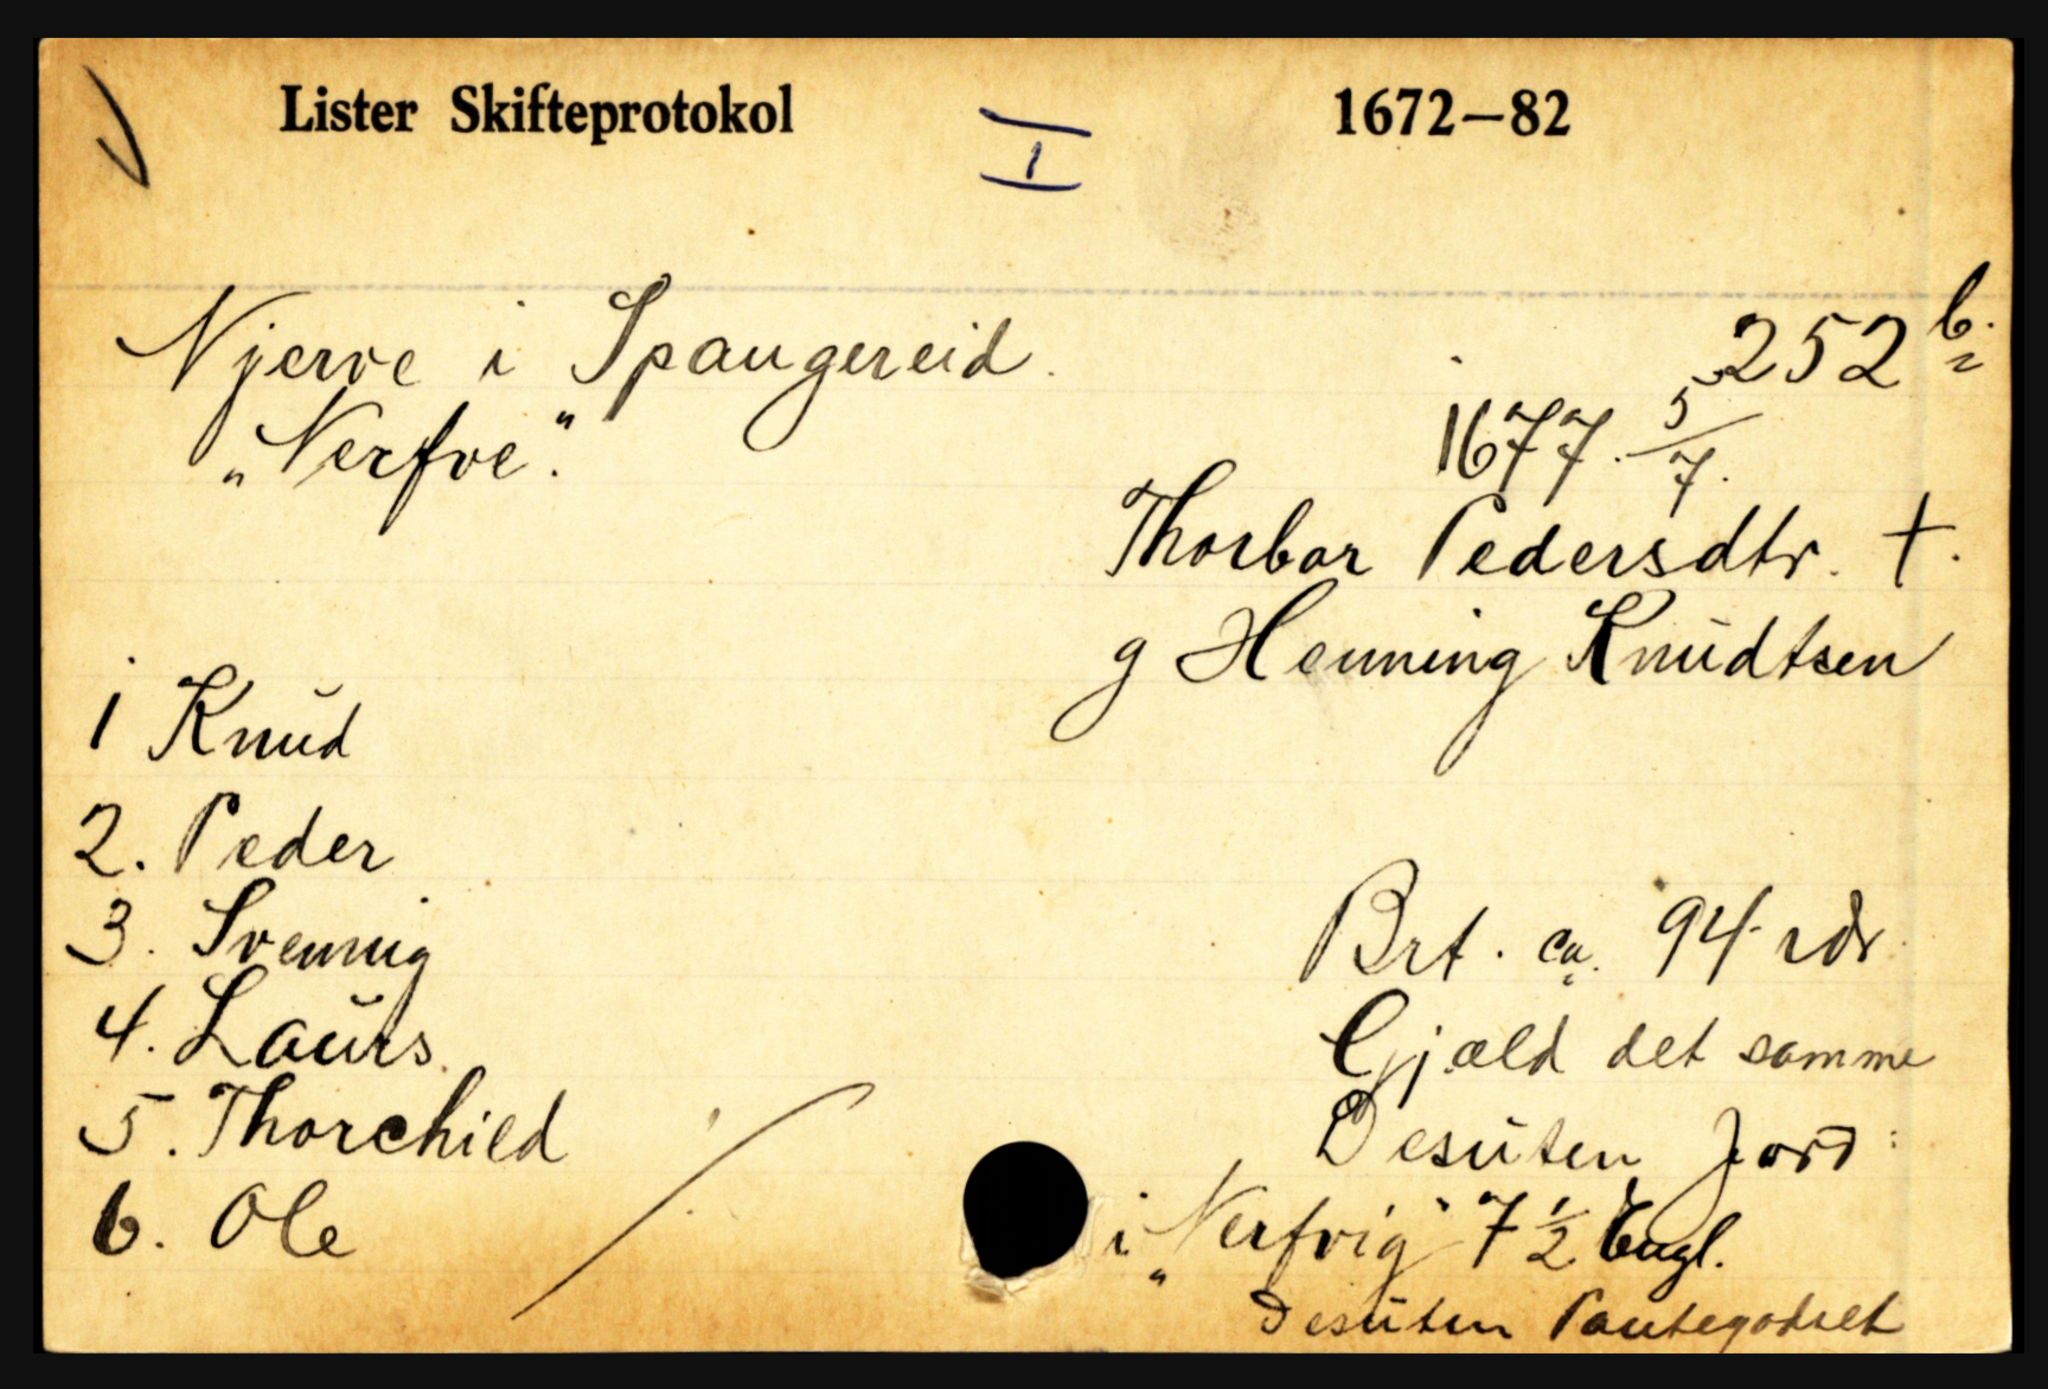 Lister Skifteprotokol I 1672-82
Njerve i Spangereid.
252 b.
"Nerfve".
1677. 5/7.
Thorbor Pedersdtr. †.
g Henning Knudtsen
1 Knud
2. Peder
3. Svennig
4. Laurs.
5. Thorchild
6. Ole
Brt. ca. 94 rdr
Gjæld det samme
Desuten Jord:
i "Nerfvig" 7 1/2 Engl.
Desuten Pantegodset